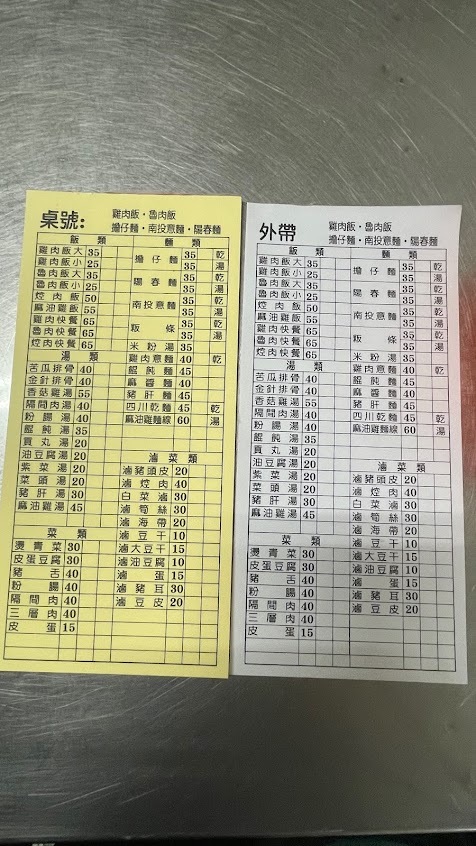 桌號:
雞肉飯・魯肉飯
擔仔麵・南投意麵・陽春麵
飯 類
雞肉飯大 35
雞肉飯小 25
魯肉飯大 35
魯肉飯小 25
焢肉飯 50
麻油雞飯 55
雞肉快餐 65
魯肉快餐 65
焢肉快餐 65
湯 類
苦瓜排骨 40
金針排骨 40
香菇雞湯 55
隔間肉湯 40
粉腸湯 40
餛飩湯 35
貢丸湯 20
油豆腐湯 20
紫菜湯 20
菜頭湯 20
豬肝湯 30
麻油雞湯 45
菜 類
燙青菜 30
皮蛋豆腐 30
豬舌 40
粉腸 40
隔間肉 40
三層肉 40
皮蛋 15
麵 類
擔仔麵 35 乾
35 湯
陽春麵 35 乾
35 湯
南投意麵 35 乾
35 湯
粄條 35 乾
35 湯
米粉湯 35
雞肉意麵 40 乾
餛飩麵 45
麻醬麵 40
豬肝麵 45
四川乾麵 45 乾
麻油雞麵線 60 湯
滷菜類
滷豬頭皮 20
滷焢肉 40
白菜滷 30
滷筍絲 30
滷海帶 20
滷豆干 10
滷大豆干 15
滷油豆腐 10
滷蛋 15
滷豬耳 30
滷豆皮 20
外帶
雞肉飯・魯肉飯
擔仔麵・南投意麵・陽春麵
飯 類
雞肉飯大 35
雞肉飯小 25
魯肉飯大 35
魯肉飯小 25
焢肉飯 50
麻油雞飯 55
雞肉快餐 65
魯肉快餐 65
焢肉快餐 65
湯 類
苦瓜排骨 40
金針排骨 40
香菇雞湯 55
隔間肉湯 40
粉腸湯 40
餛飩湯 35
貢丸湯 20
油豆腐湯 20
紫菜湯 20
菜頭湯 20
豬肝湯 30
麻油雞湯 45
菜 類
燙青菜 30
皮蛋豆腐 30
豬舌 40
粉腸 40
隔間肉 40
三層肉 40
皮蛋 15
麵 類
擔仔麵 35 乾
35 湯
陽春麵 35 乾
35 湯
南投意麵 35 乾
35 湯
粄條 35 乾
35 湯
米粉湯 35
雞肉意麵 40 乾
餛飩麵 45
麻醬麵 40
豬肝麵 45
四川乾麵 45 乾
麻油雞麵線 60 湯
滷菜類
滷豬頭皮 20
滷焢肉 40
白菜滷 30
滷筍絲 30
滷海帶 20
滷豆干 10
滷大豆干 15
滷油豆腐 10
滷蛋 15
滷豬耳 30
滷豆皮 20